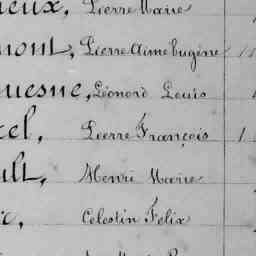 ieux, Pierre Marie
mont, Pierre Aime Eugène
uesne, Léonord Louis
cel, Pierre François 1
ult, Henri Marie
Celestin Félix